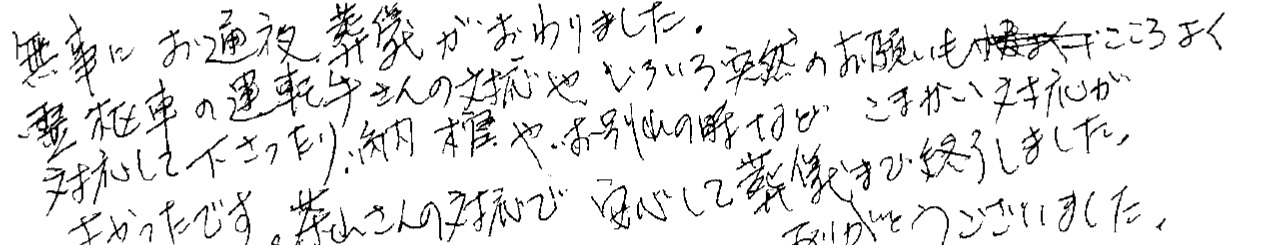 無事にお通夜、葬儀がおわりました。
霊柩車の運転手さんの対応や、いろいろ突然のお願いもこころよく
対応して下さったり、納棺や、お別れの時など こまかい対応が
よかったです。葉山さんの対応で 安心して葬儀まで終了しました。
ありがとうございました。